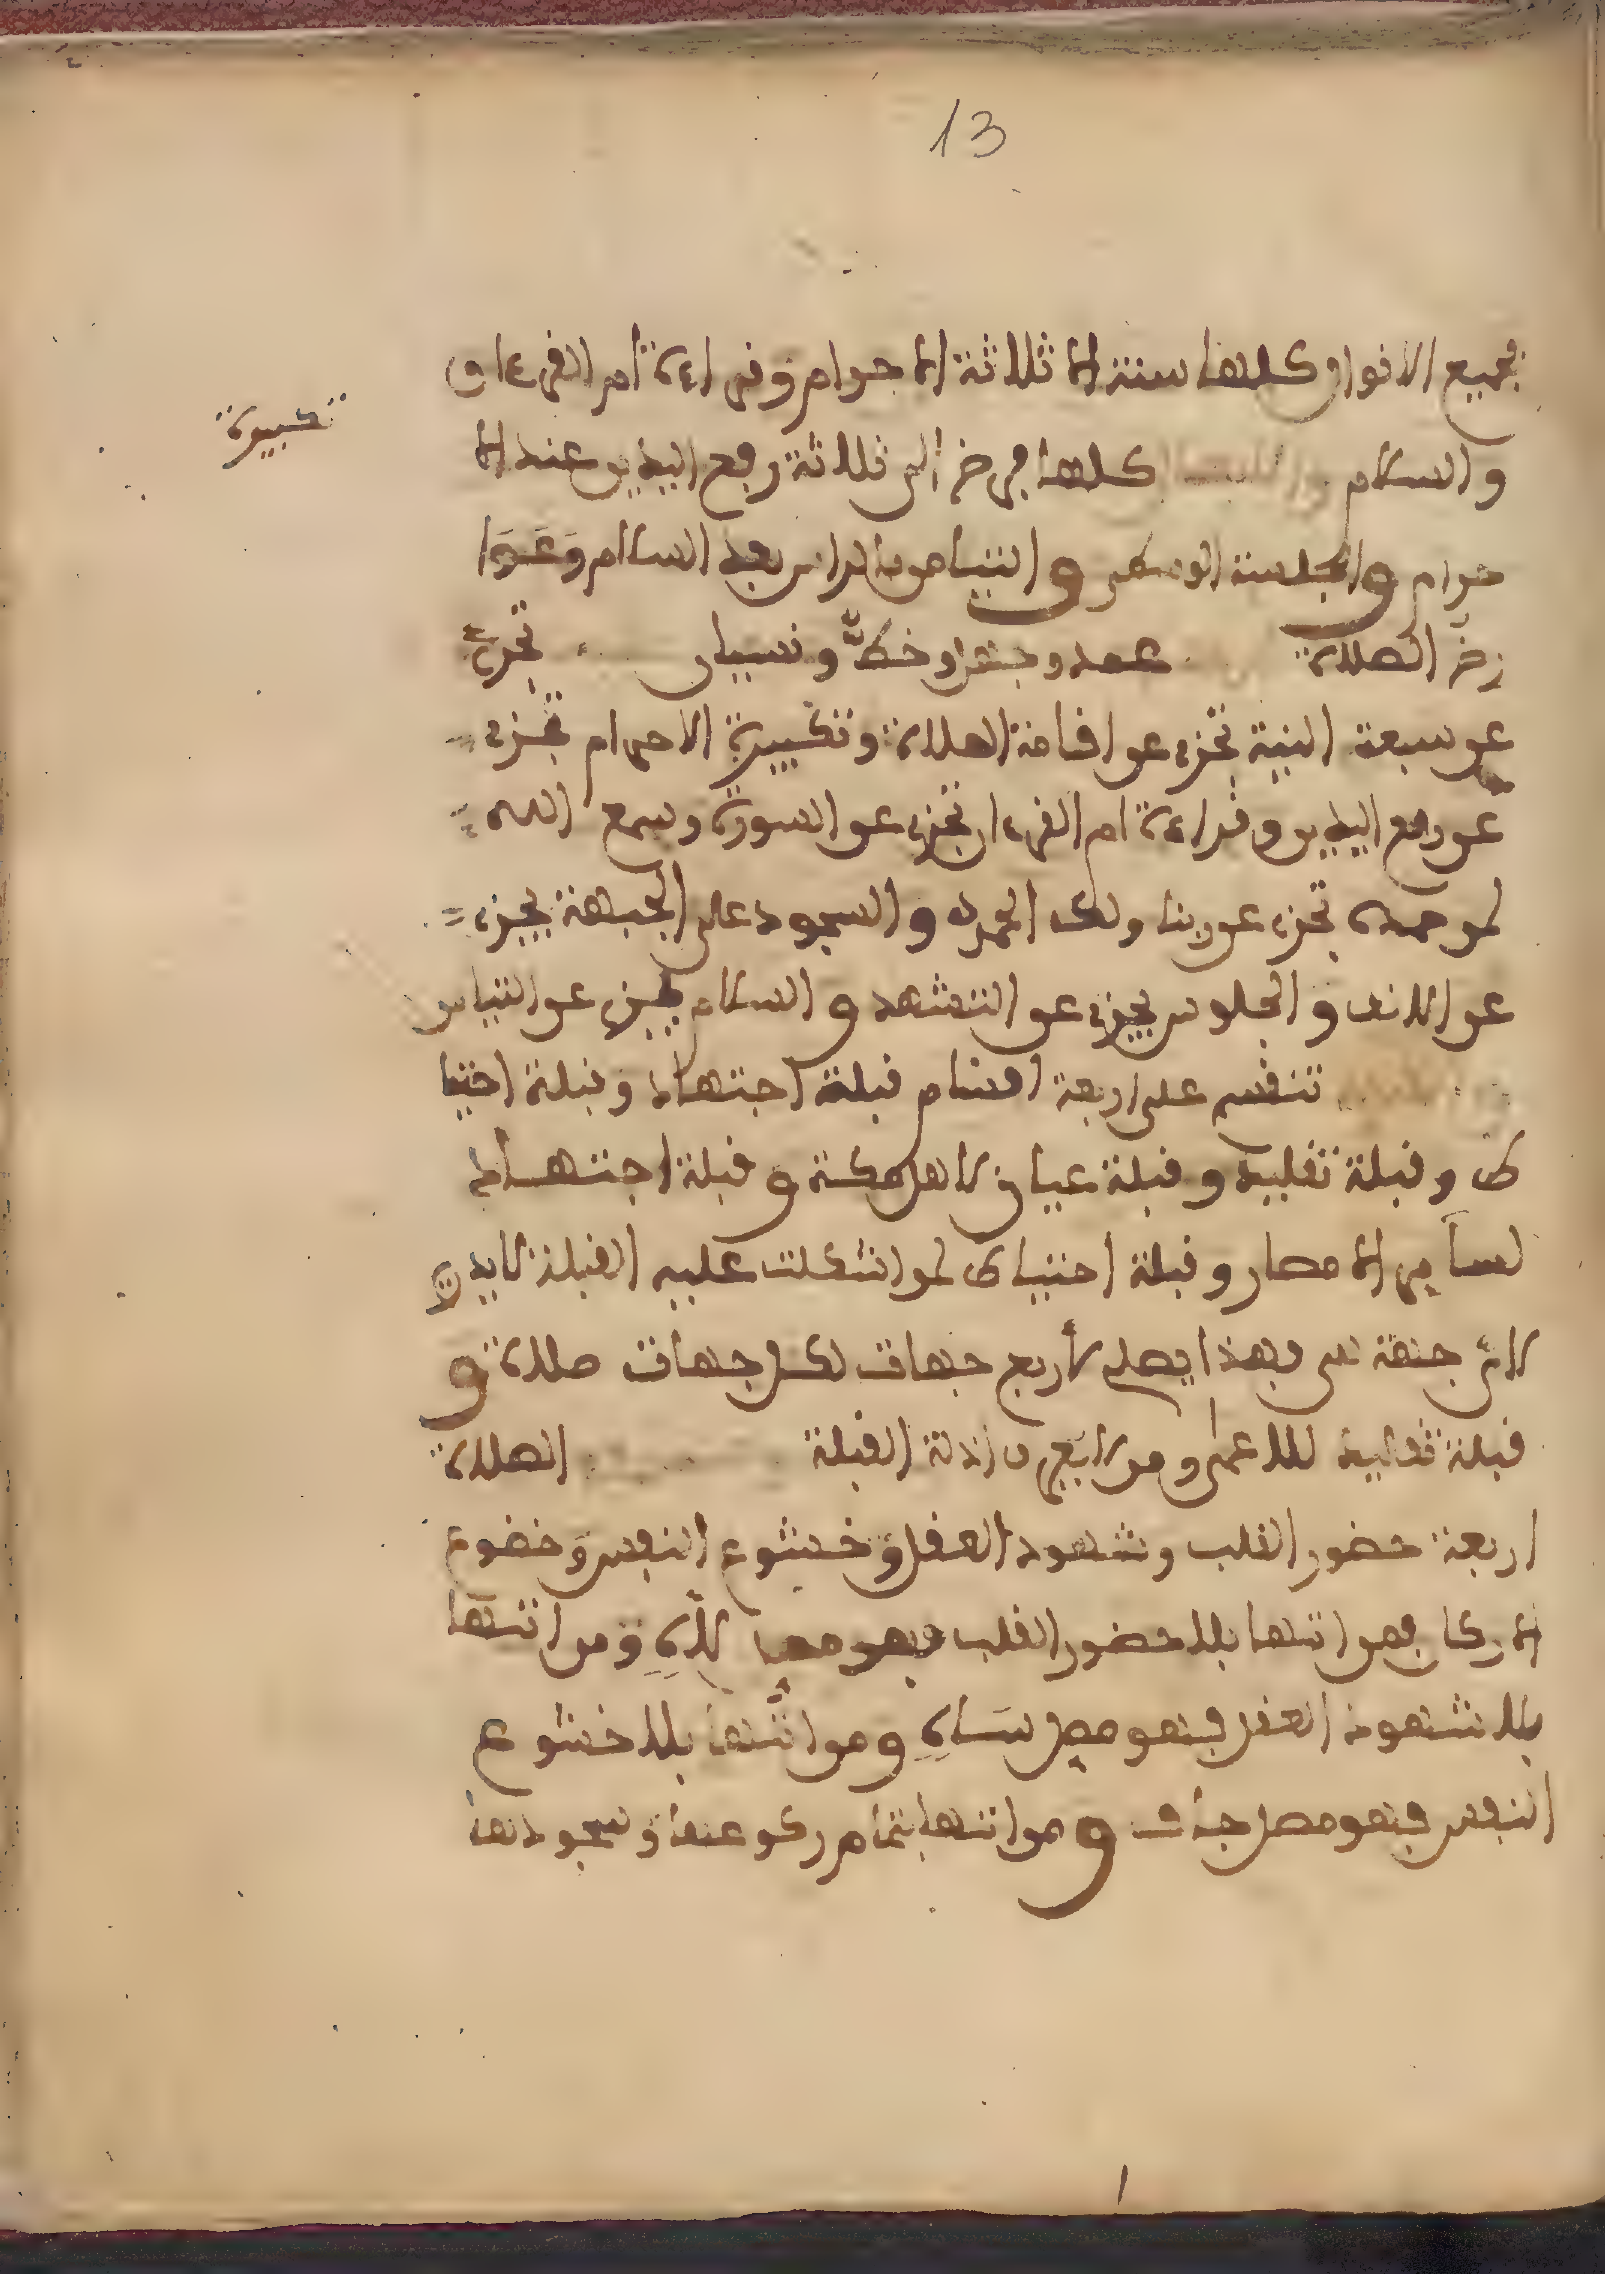 13
فجميع الافوال كلها سنة الا ثلاثة الا حرام وفراءة ام الفرءان
تكبيرة
والسلام كلها فرض الى ثلاثة رفع اليدين عند الا
حرام والجلسة الوسطى والتيامن بالراس بعد السلام وعوا
رض الصلاة عمد وجهل وخطأ ونسيان تجزء
عن سبعة النية تجزء عن افامة الصلاة وتكبيرة الاحرام تجزء
عن رفع اليدين وفراءة ام الفرءان تجزء عن السورة وسمع الله
لمن حمده تجزء عن ربنا ولك الحمد والسجود على الجبهة يجزء
عن الانف والجلوس يجزء عن التشهد والسلام يجزء عن التيامن
تنفسم على اربعة افسام فبلة اجتهاد وفبلة احتيا
ط وفبلة تفليد وفبلة عيان لاهل مكة وفبلة اجتهاد
لساير الامصار وفبلة احتياط لمن اشكلت عليه الفبلة لايدر
لاي جهة هي فهذا يصلي لاربع جهات لكل جهات صلاة و
فبلة تفليد للاعمى ومن لايعرف ادلة الفبلة الصلاة
اربعة حضور الفلب وشهود العفل وخشوع النفس وخضوع
الاركان فمن اتها بلا حضور الفلب فهو مصل لاه ومن اتها
بلا شهود العفل فهو مصل ساه ومن اتها بلا خشوع
النفس فهو مصل جاف ومن اتها بتمام ركوعها وسجودها